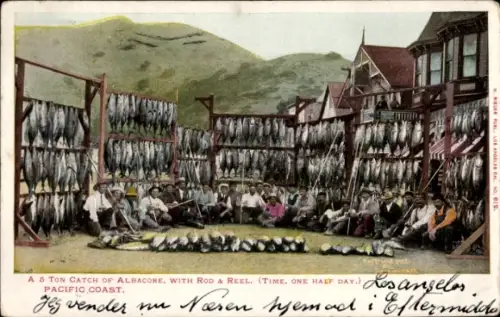 A 5 TON CATCH OF ALBACORE, WITH ROD & REEL. (TIME, ONE HALF DAY.)
PACIFIC COAST.
Los angelos
Jeg vender nu Næsen hjemad i Eftermidd